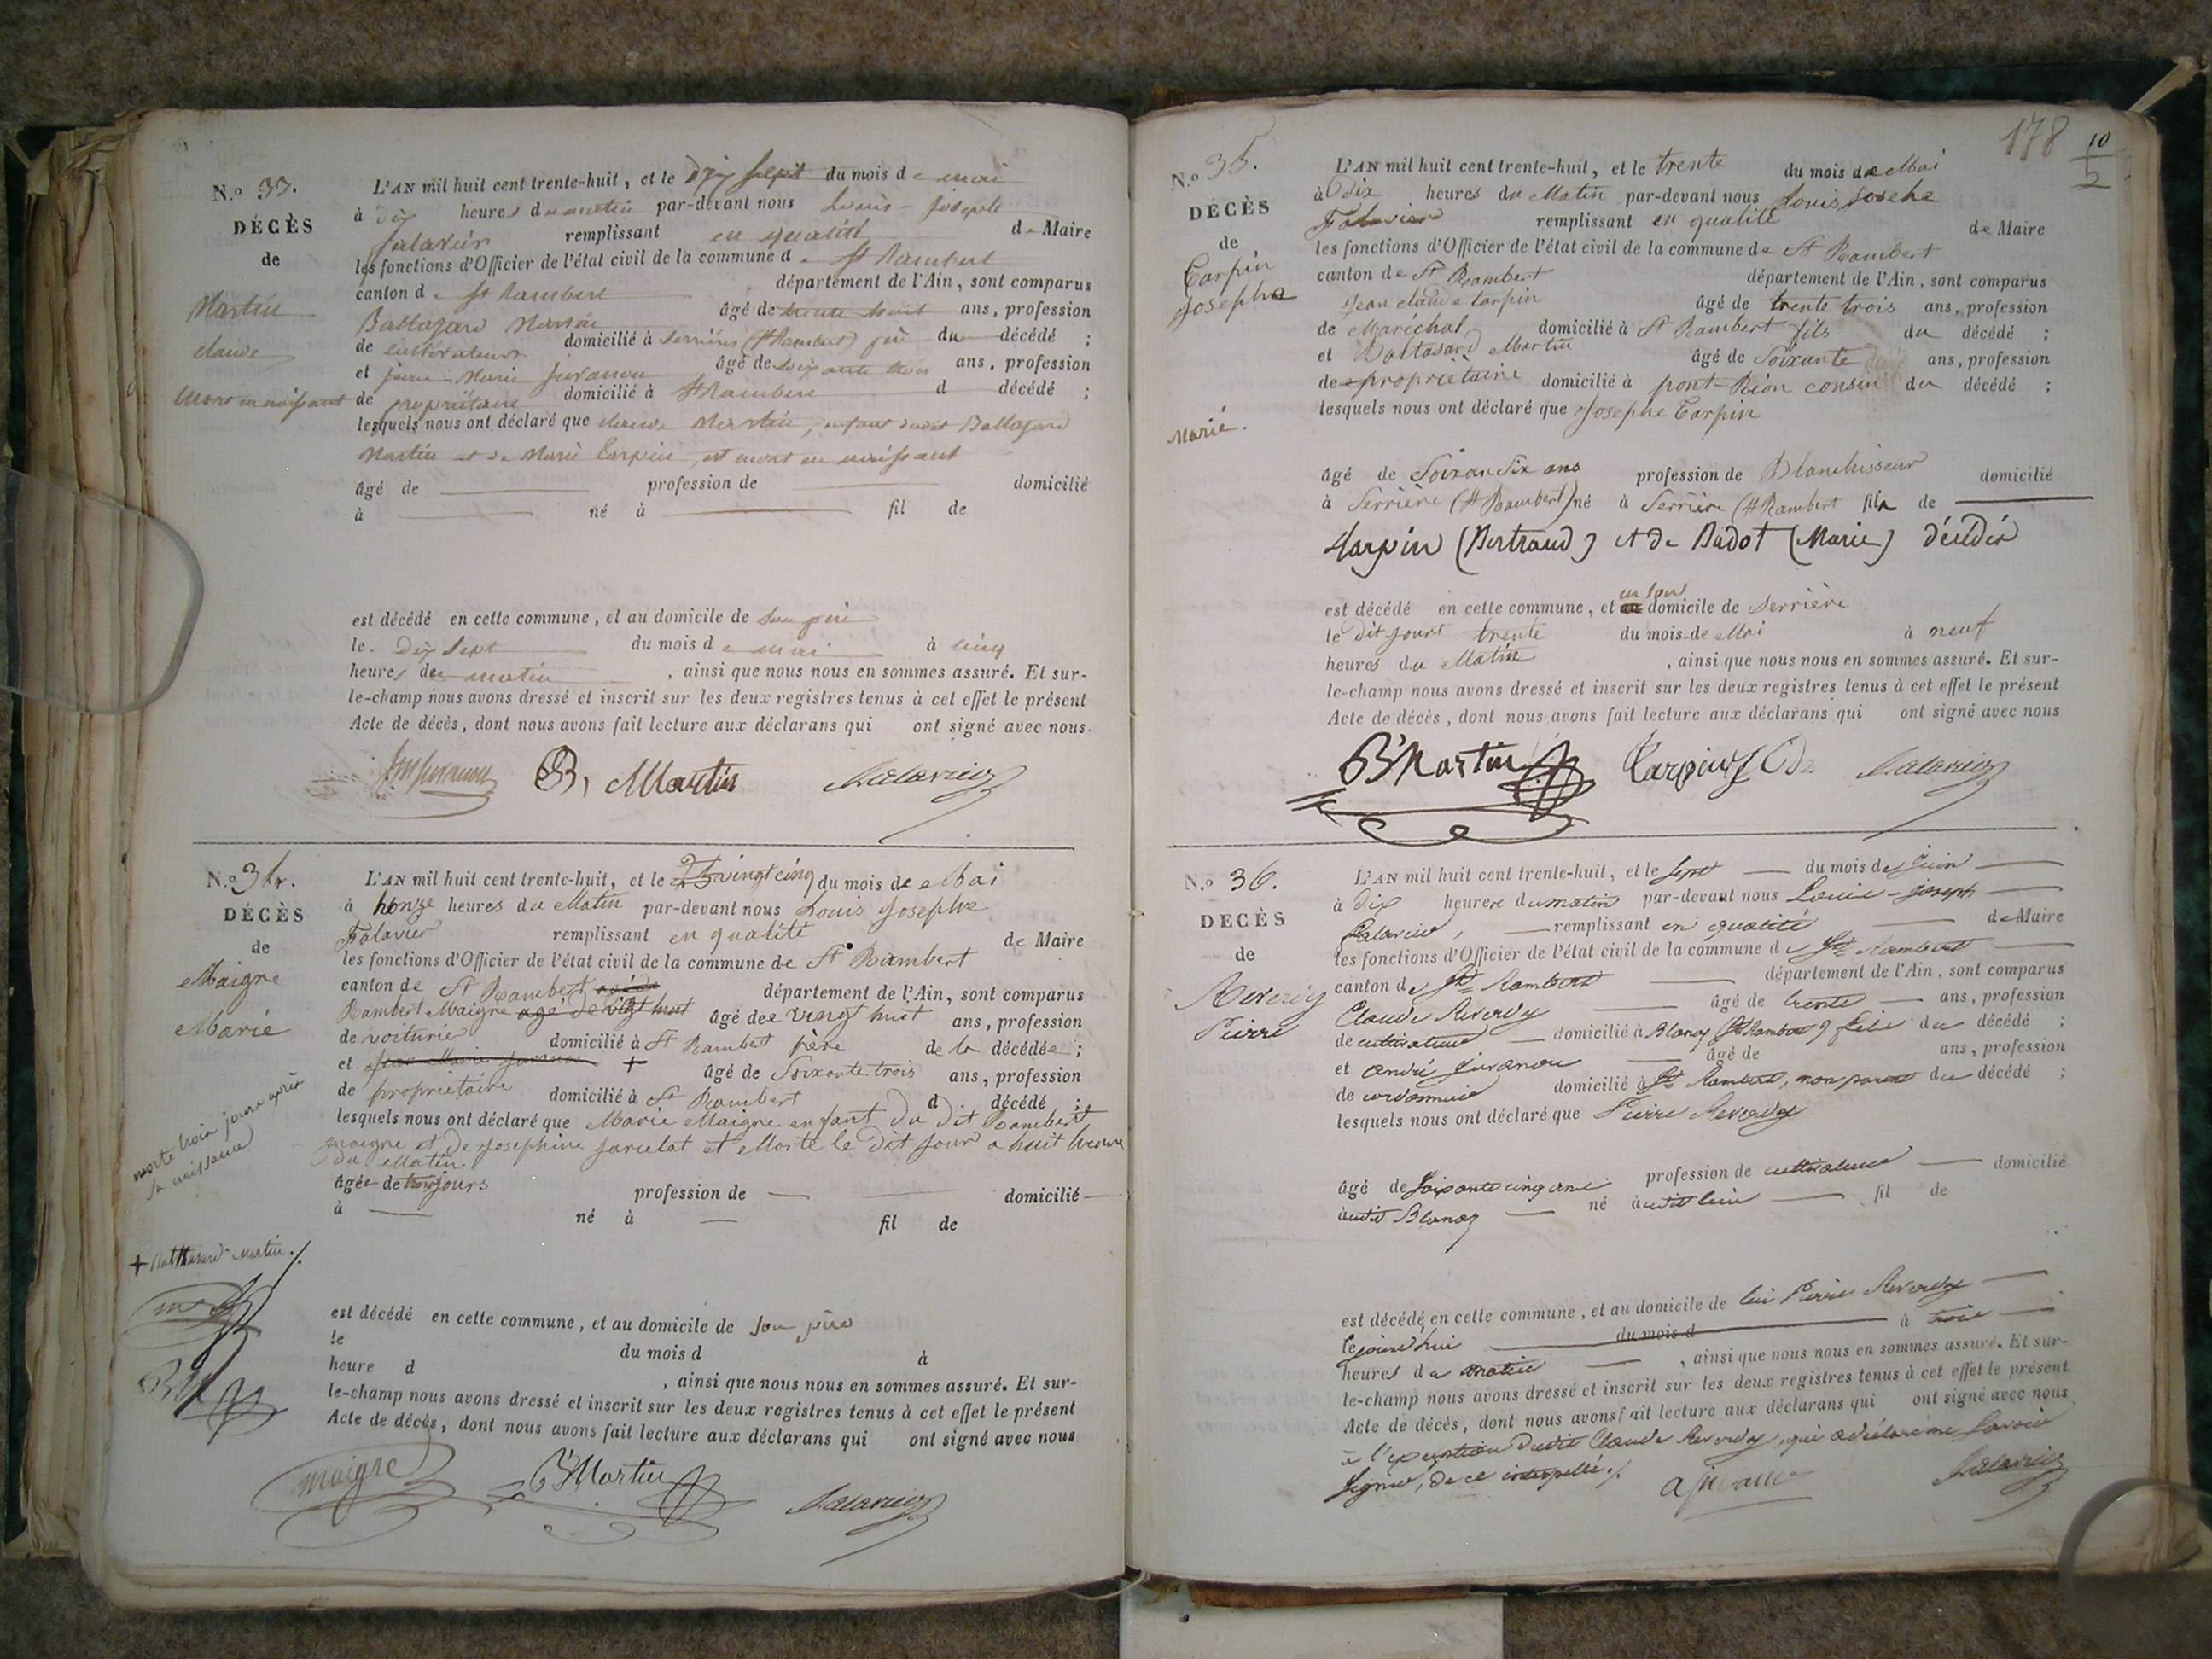 N.o 33.
DÉCÈS
de
Martin
claude
mort en naissant
L'AN mil huit cent trente-huit, et le dix sept du mois de mai
à dix heures du matin par-devant nous Louis-joseph
falavier remplissant en qualité de Maire
les fonctions d'Officier de l'état civil de la commune de St Rambert
canton de St Rambert département de l'Ain, sont comparus
Baltazard Martin âgé de trente huit ans, profession
de cultivateur domicilié à Serrières (St Rambert) père du décédé ;
et jean-Marie juvanon âgé de soixante trois ans, profession
de propriétaire domicilié à St Rambert d décédé ;
lesquels nous ont déclaré que claude Martin, enfant dudit Baltazard
Martin et de Marie Carpin, est mort en naissant
âgé de profession de domicilié
à né à fil de
est décédé en cette commune, et au domicile de son père
le dix sept du mois de mai à cinq
heures du matin, ainsi que nous nous en sommes assuré. Et sur-
le-champ nous avons dressé et inscrit sur les deux registres tenus à cet effet le présent
Acte de décès, dont nous avons fait lecture aux déclarans qui ont signé avec nous.
B, Martin falavier
N.o 34.
DÉCÈS
de
Maigre
Marie
morte trois jours après
sa naissance
+ Balthazard Martin ./.
L'AN mil huit cent trente-huit, et le 25 vingt cinq du mois de Mai
à honze heures du Matin par-devant nous Louis Josephe
Falavier remplissant en qualité de Maire
les fonctions d'Officier de l'état civil de la commune de St Rambert
canton de St Rambert département de l'Ain, sont comparus
Rambert Maigre age de vigt huit âgé de vingt huit ans, profession
de voiturié domicilié à St Rambert père de la décédée ;
et jean Marie juvanon + âgé de Soixante trois ans, profession
de proprietaire domicilié à St Rambert d décédé ;
lesquels nous ont déclaré que Marie Maigre enfant du dit Rambert
maigre et de josephine jarcelat et Morte le dit jour a huit heure
du Matin
âgée de trois jours profession de domicilié
à né à fil de
est décédé en cette commune, et au domicile de son père
le du mois d à
heure d , ainsi que nous nous en sommes assuré. Et sur-
le-champ nous avons dressé et inscrit sur les deux registres tenus à cet effet le présent
Acte de décès, dont nous avons fait lecture aux déclarans qui ont signé avec nous
maigre B Martin falavier
178 10
2
N.o 35.
DÉCÈS
de
Carpin
Josephe
Marié.
L'AN mil huit cent trente-huit, et le trente du mois de Mai
à dix heures du Matin par-devant nous Louis Josephe
Falavier remplissant en qualité de Maire
les fonctions d'Officier de l'état civil de la commune de St Rambert
canton de St Rambert département de l'Ain, sont comparus
Jean claude Carpin âgé de trente trois ans, profession
de Maréchal domicilié à St Rambert fils du décédé ;
et Baltasard Martin âgé de Soixante ans, profession
de proprietaire domicilié à pont-Rion cousin du décédé ;
lesquels nous ont déclaré que Josephe Carpin
âgé de Soixan Six ans profession de Blanchisseur domicilié
à Serrière (St Rambert) né à Serrière (St Rambert fils de
Carpin (Bertrand) et de Badot (Marie) décédés
en son
est décédé en cette commune, et au domicile de Serrière
le dit jour trente du mois de Mai à neuf
heures du Matin, ainsi que nous nous en sommes assuré. Et sur-
le-champ nous avons dressé et inscrit sur les deux registres tenus à cet effet le présent
Acte de décès, dont nous avons fait lecture aux déclarans qui ont signé avec nous
B Martin Carpin falavier
N.o 36.
DÉCÈS
de
Reverdy
Pierre
L'AN mil huit cent trente-huit, et le sept du mois de juin
à dix heures du matin par-devant nous Louis-joseph
falavier, remplissant en qualité de Maire
les fonctions d'Officier de l'état civil de la commune de St Rambert
canton de St Rambert département de l'Ain, sont comparus
Claude Reverdy âgé de trente ans, profession
de cultivateur domicilié à Blanaz (St Rambert) fils du décédé ;
et andré juvanon âgé de ans, profession
de cordonnier domicilié à St Rambert, non parent du décédé ;
lesquels nous ont déclaré que Pierre Reverdy
âgé de soixante cinq ans profession de cultivateur domicilié
audit Blanaz né audit lieu fil de
est décédé en cette commune, et au domicile de lui Pierre Reverdy
cejourd'hui du mois d à trois
heures du matin, ainsi que nous nous en sommes assuré. Et sur-
le-champ nous avons dressé et inscrit sur les deux registres tenus à cet effet le présent
Acte de décès, dont nous avons fait lecture aux déclarans qui ont signé avec nous
à l'exception dudit Claude Reverdy, qui a déclaré ne savoir
signer, de ce interpellé ./. falavier